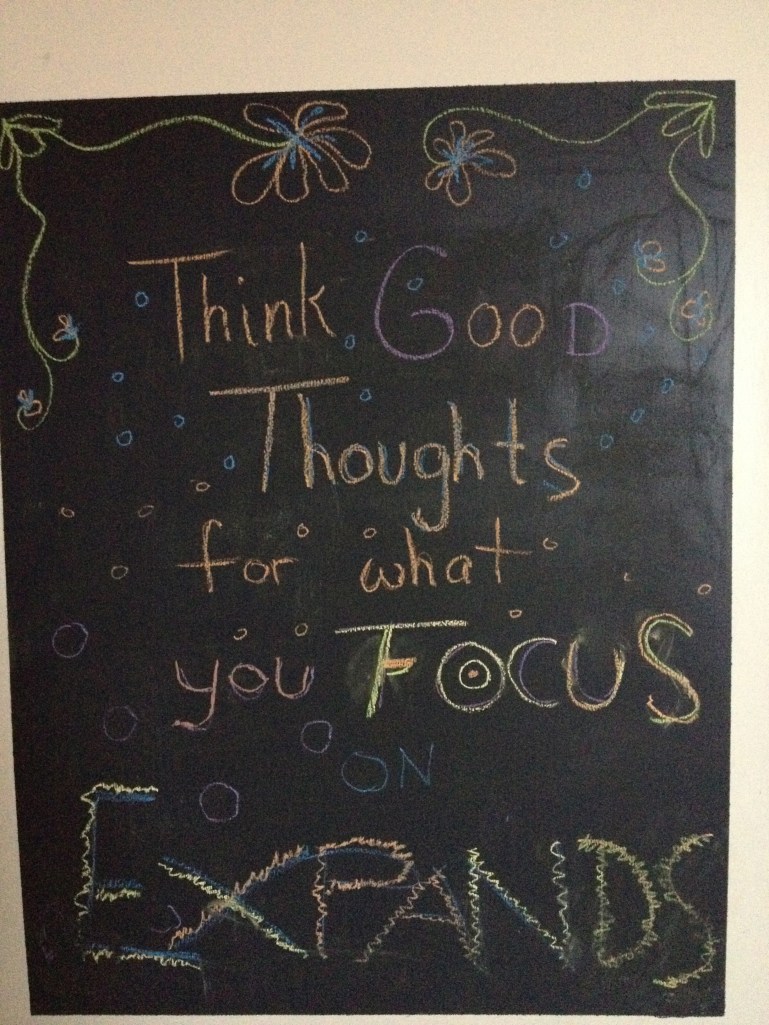 Think GOOD
Thoughts
for what
you FOCUS
ON
EXPANDS